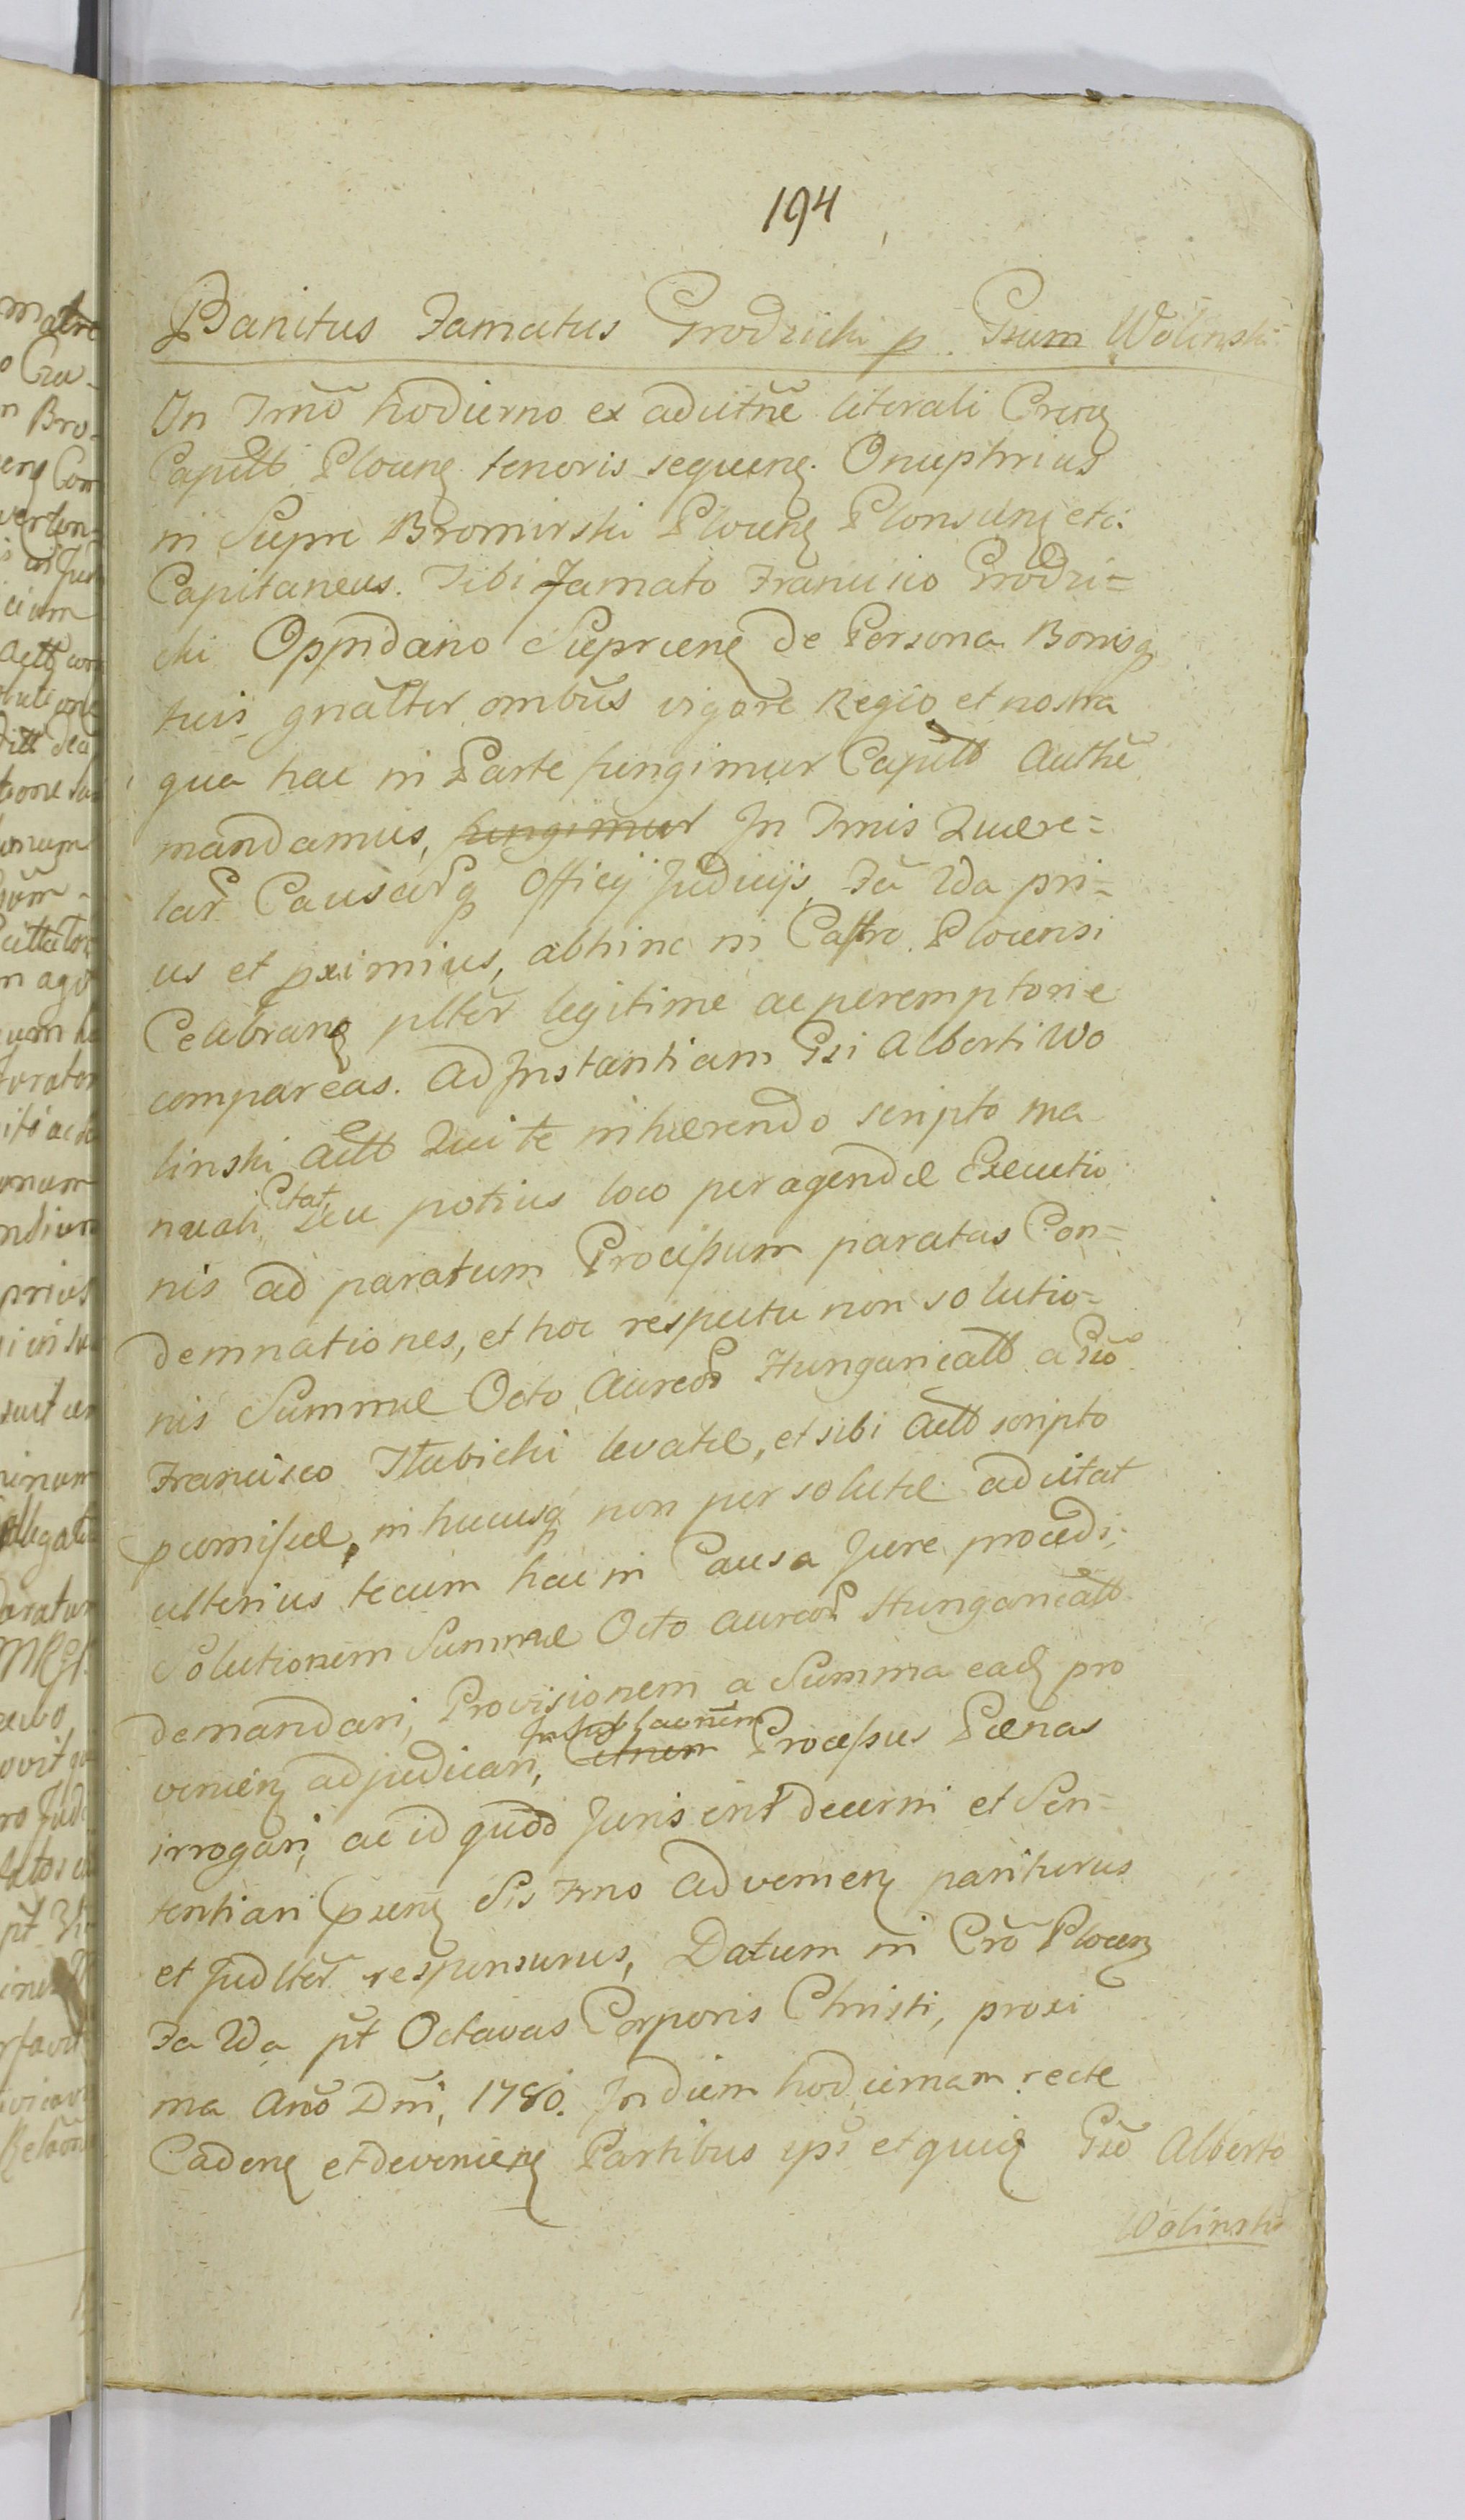 194
Banitus Famatus Grodzicki p. Gsum Wolinski
In Trnō hodierno ex adcitnē literali Crien
Capitlb Plocen tenoris sequen. Onuphrius
in Sieprc Bromirski Plocen Plonscen etc:
Capitaneus. Tibi Famato Francisco Grodzi=
cki Oppidano Sieprcen de Persona Bonisq
tuis gnalter ombūs vigore Regio et nostra
qua hac in Parte fungimur Capitlb Authē
mandamus, fungimur In Trnis Quere=
lar Causarq Officij Judicijs, Fā 2da pri=
us et pximius, abhinc in Castro Plocensi
Celebran pltēr legitime ac peremptorie
compareas. Ad Instantiam Gsi Alberti Wo
linski Actb Qui te inhærendo scripto ma
nuali Citat seu potius loco peragendæ Executio
nis ad paratum Processum paratas Con=
demnationes, et hoc respectu non solutio=
nis Summæ Octo Aureor Hungaricalb a Gsō
Francisco Itubicki levatæ, et sibi Actb scripto
pcomissæ, in hucusq non persolutæ adcitat
ulterius tecum hac in Causa Jure procedi;
Solutionem Summæ Octo Aureor Hungaricalb
demandari, Provisionem a Summa ead pro
venien adjudicari, Citnem Processus Pænas
irrogari, ac id quod Juris erit decerni et Sen=
tentiari psen Sis Trno advenien pariturus
et Judltēr responsurus, Datum in Crō Plocen
Fa 2da pt Octavas Corporis Christi, proxi
ma Anō Dni, 1780. In diem hodiernam recte
Caden et devenien Partibus ips et quid Gsō Alberto
Wolinski